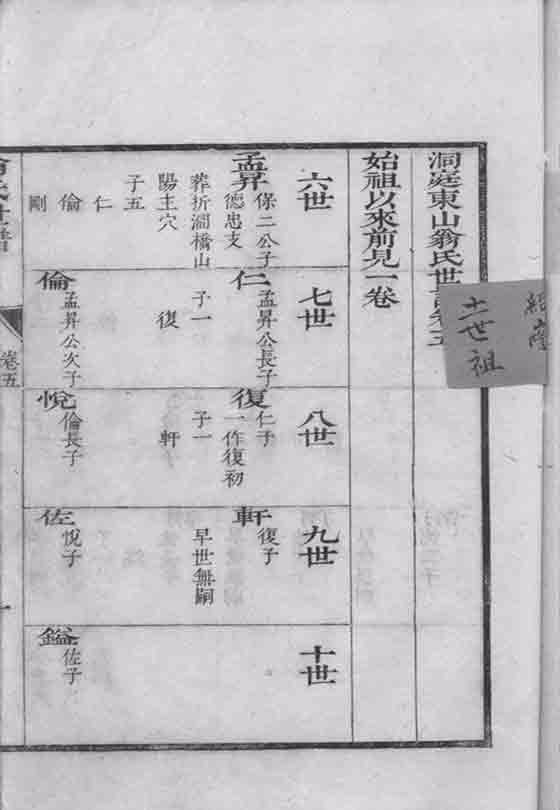 洞庭東山翁氏世譜卷五
始祖以來前見一卷
六世
孟昇
保二公子
德忠支
葬折澗橋山
陽主穴
子五
仁
倫
剛
七世
仁
孟昇公長子
子一
復
倫
孟昇公次子
八世
復
仁子
一作復初
子一
軒
悅
倫長子
九世
軒
復子
早世無嗣
佐
悅子
十世
鎰
佐子
翁氏世譜
卷五
一
世祖